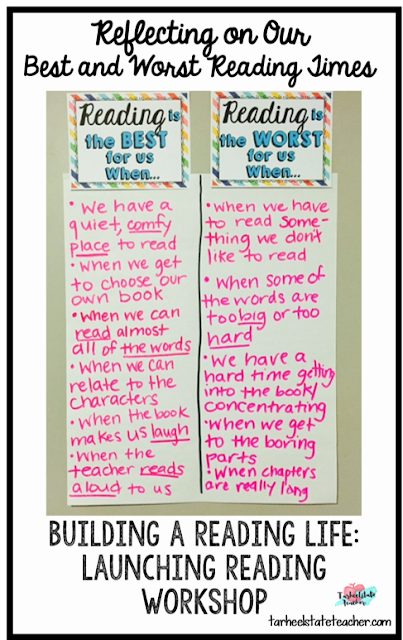 Reflecting on Our
Best and Worst Reading Times
Reading is
the BEST
for us
when...
• We have a
quiet, comfy
place to read
• When we get
to choose our
own book
• When we can
read almost
all of the words
• When we can
relate to the
characters
• When the book
makes us laugh
• When the
teacher reads
aloud to us
Reading is
the WORST
for us
when...
• When we have
to read some-
thing we don't
like to read
• When some of
the words are
too big or too
hard
• We have a
hard time getting
into the book/
concentrating
• When we get
to the boring
parts
• When chapters
are really long
BUILDING A READING LIFE:
LAUNCHING READING
WORKSHOP
Tarheelstate
Teacher
tarheelstateteacher.com